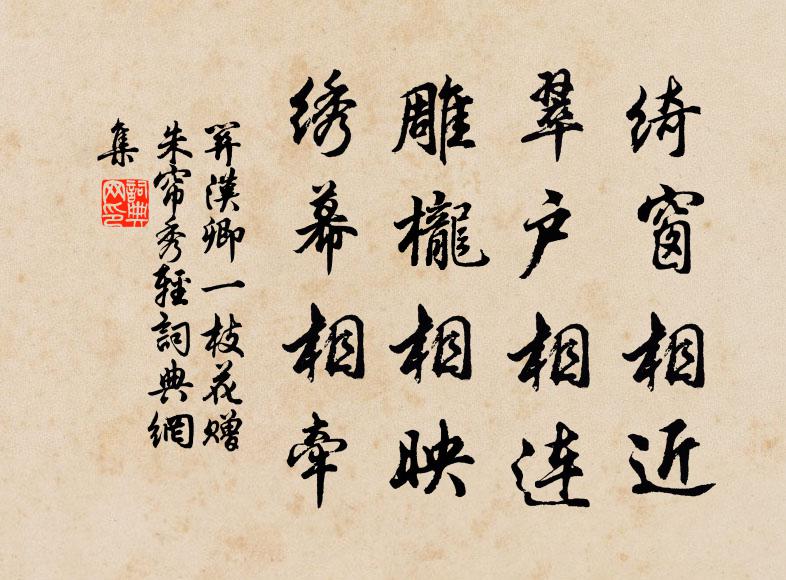 绮窗相近
翠户相连
雕櫳相映
绣幕相牵
関漢卿一枝花赠
朱帘秀輕詞典網
集
詞典
网印